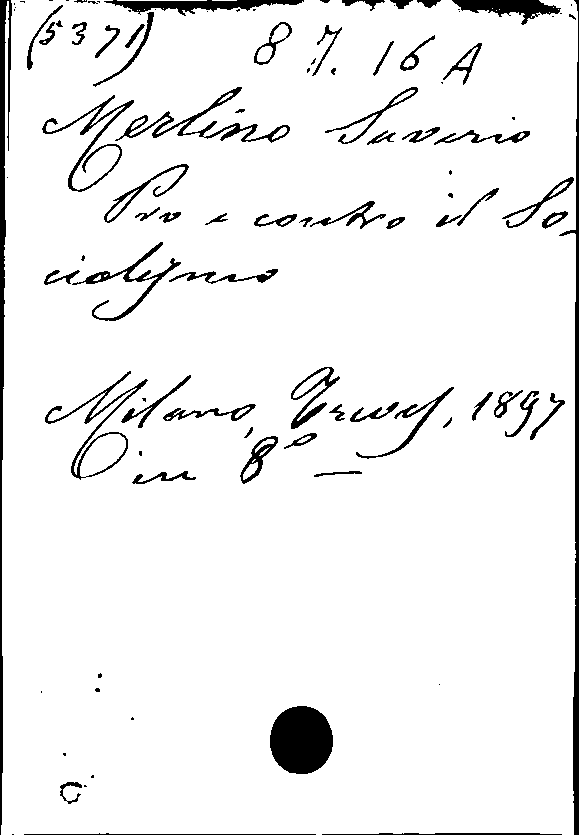 (5371) 87. 16 A
Merlino Saverio
Pro e contro il So-
cialismo
Milano, Treves, 1897
in 8º —